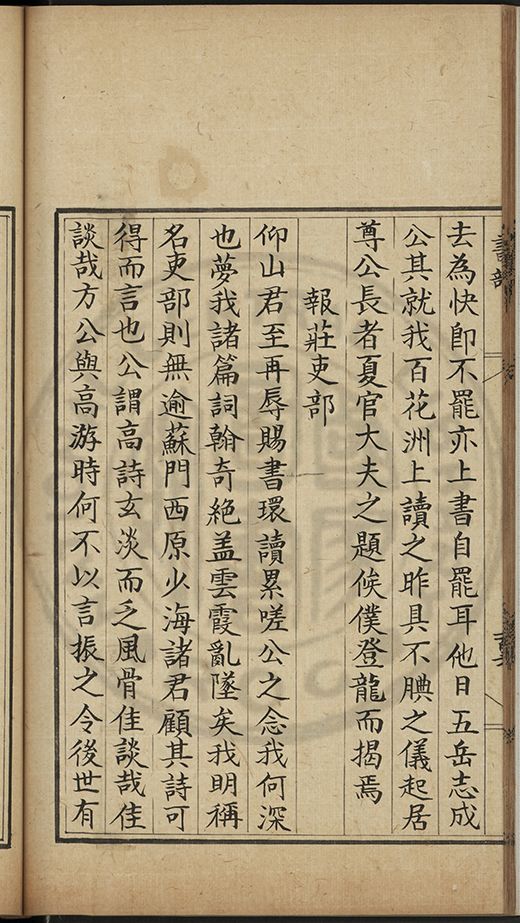 去為快卽不罷亦上書自罷耳他日五岳志成
公其就我百花洲上讀之昨具不腆之儀起居
尊公長者夏官大夫之題候僕登龍而揭焉
報莊吏部
仰山君至再辱賜書環讀累嗟公之念我何深
也夢我諸篇詞翰奇絕盖雲霞亂墜矣我明稱
名吏部則無逾蘇門西原少海諸君顧其詩可
得而言也公謂高詩玄淡而乏風骨佳談哉佳
談哉方公與高游時何不以言振之令後世有